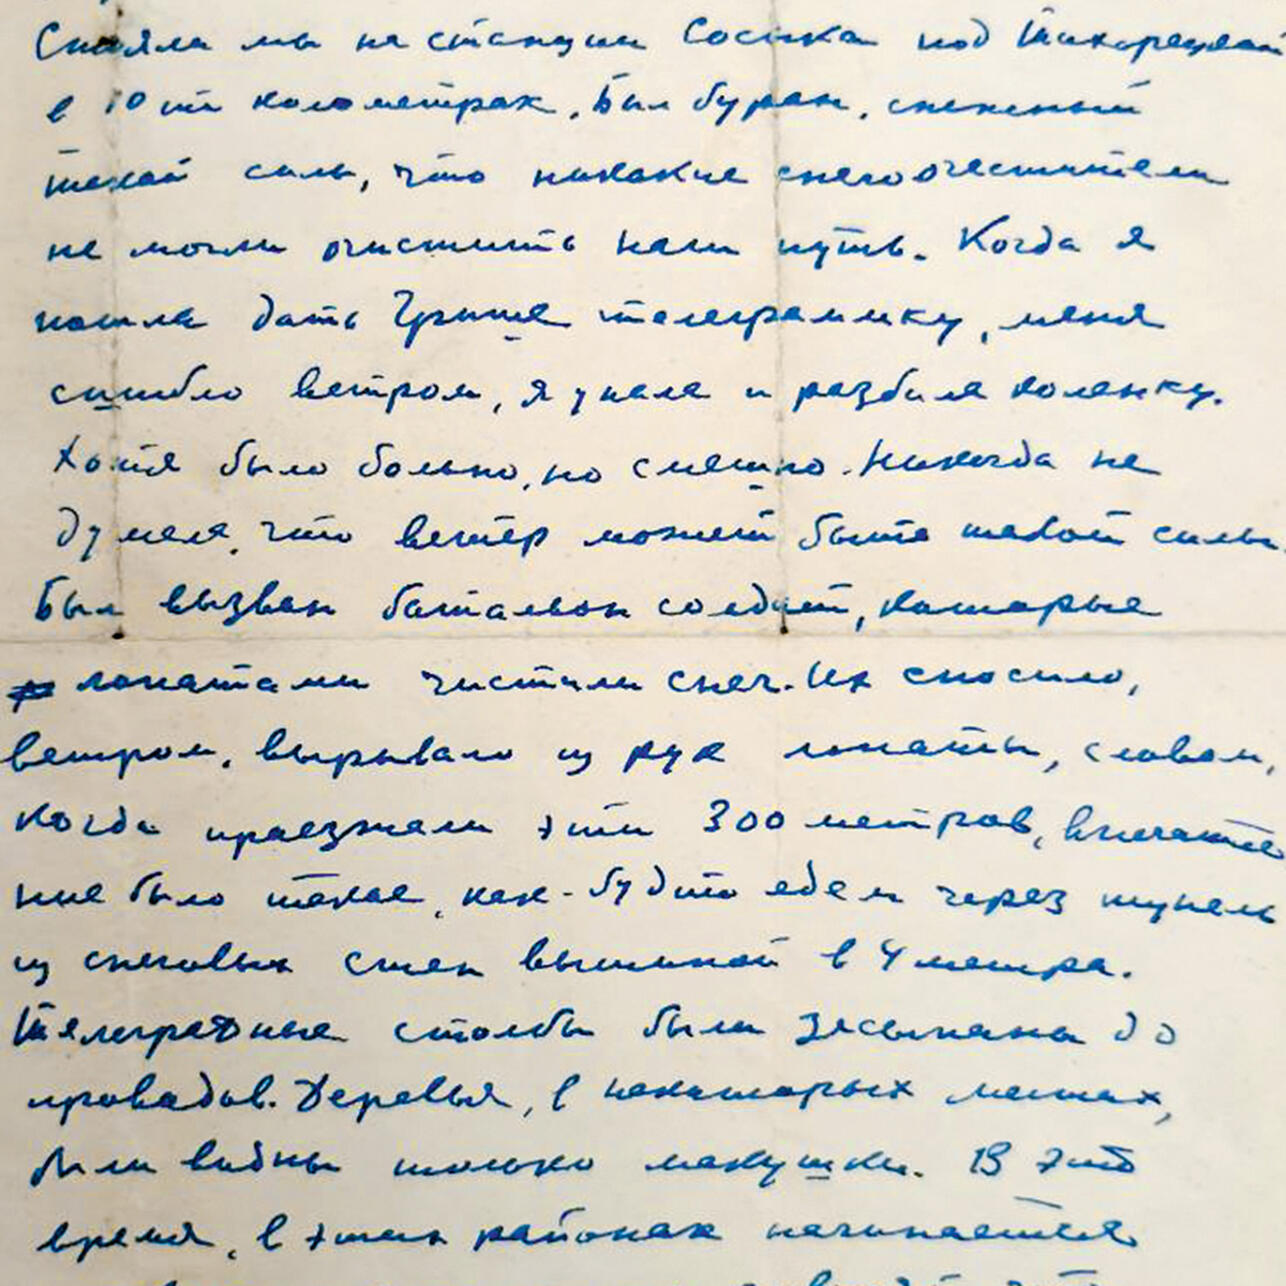 Стояли мы на станции Сосыка под Тихорецкой
в 10ти километрах. Был буран, снежный
такой силы, что никакие снегоочестители
не могли очистить наш путь. Когда я
пошла дать Грише телеграммку, меня
сшибло ветром, я упала и разбила коленку.
Хотя было больно, но смешно. Никогда не
думала, что ветер может быть такой силы.
Был вызван баталион солдат, которые
лопатами чистили снег. Их сносило,
ветром, вырывало из рук лопаты, словом,
когда праезжали эти 300 метров, впечатле
ние было такое, как-будто едем через тунель
из снеговых стен вышиной в 4 метра.
Телеграфные столбы были засыпаны до
проводов. Деревья, в некоторых местах,
были видны только макушки. В это
время, в этих районах начинается